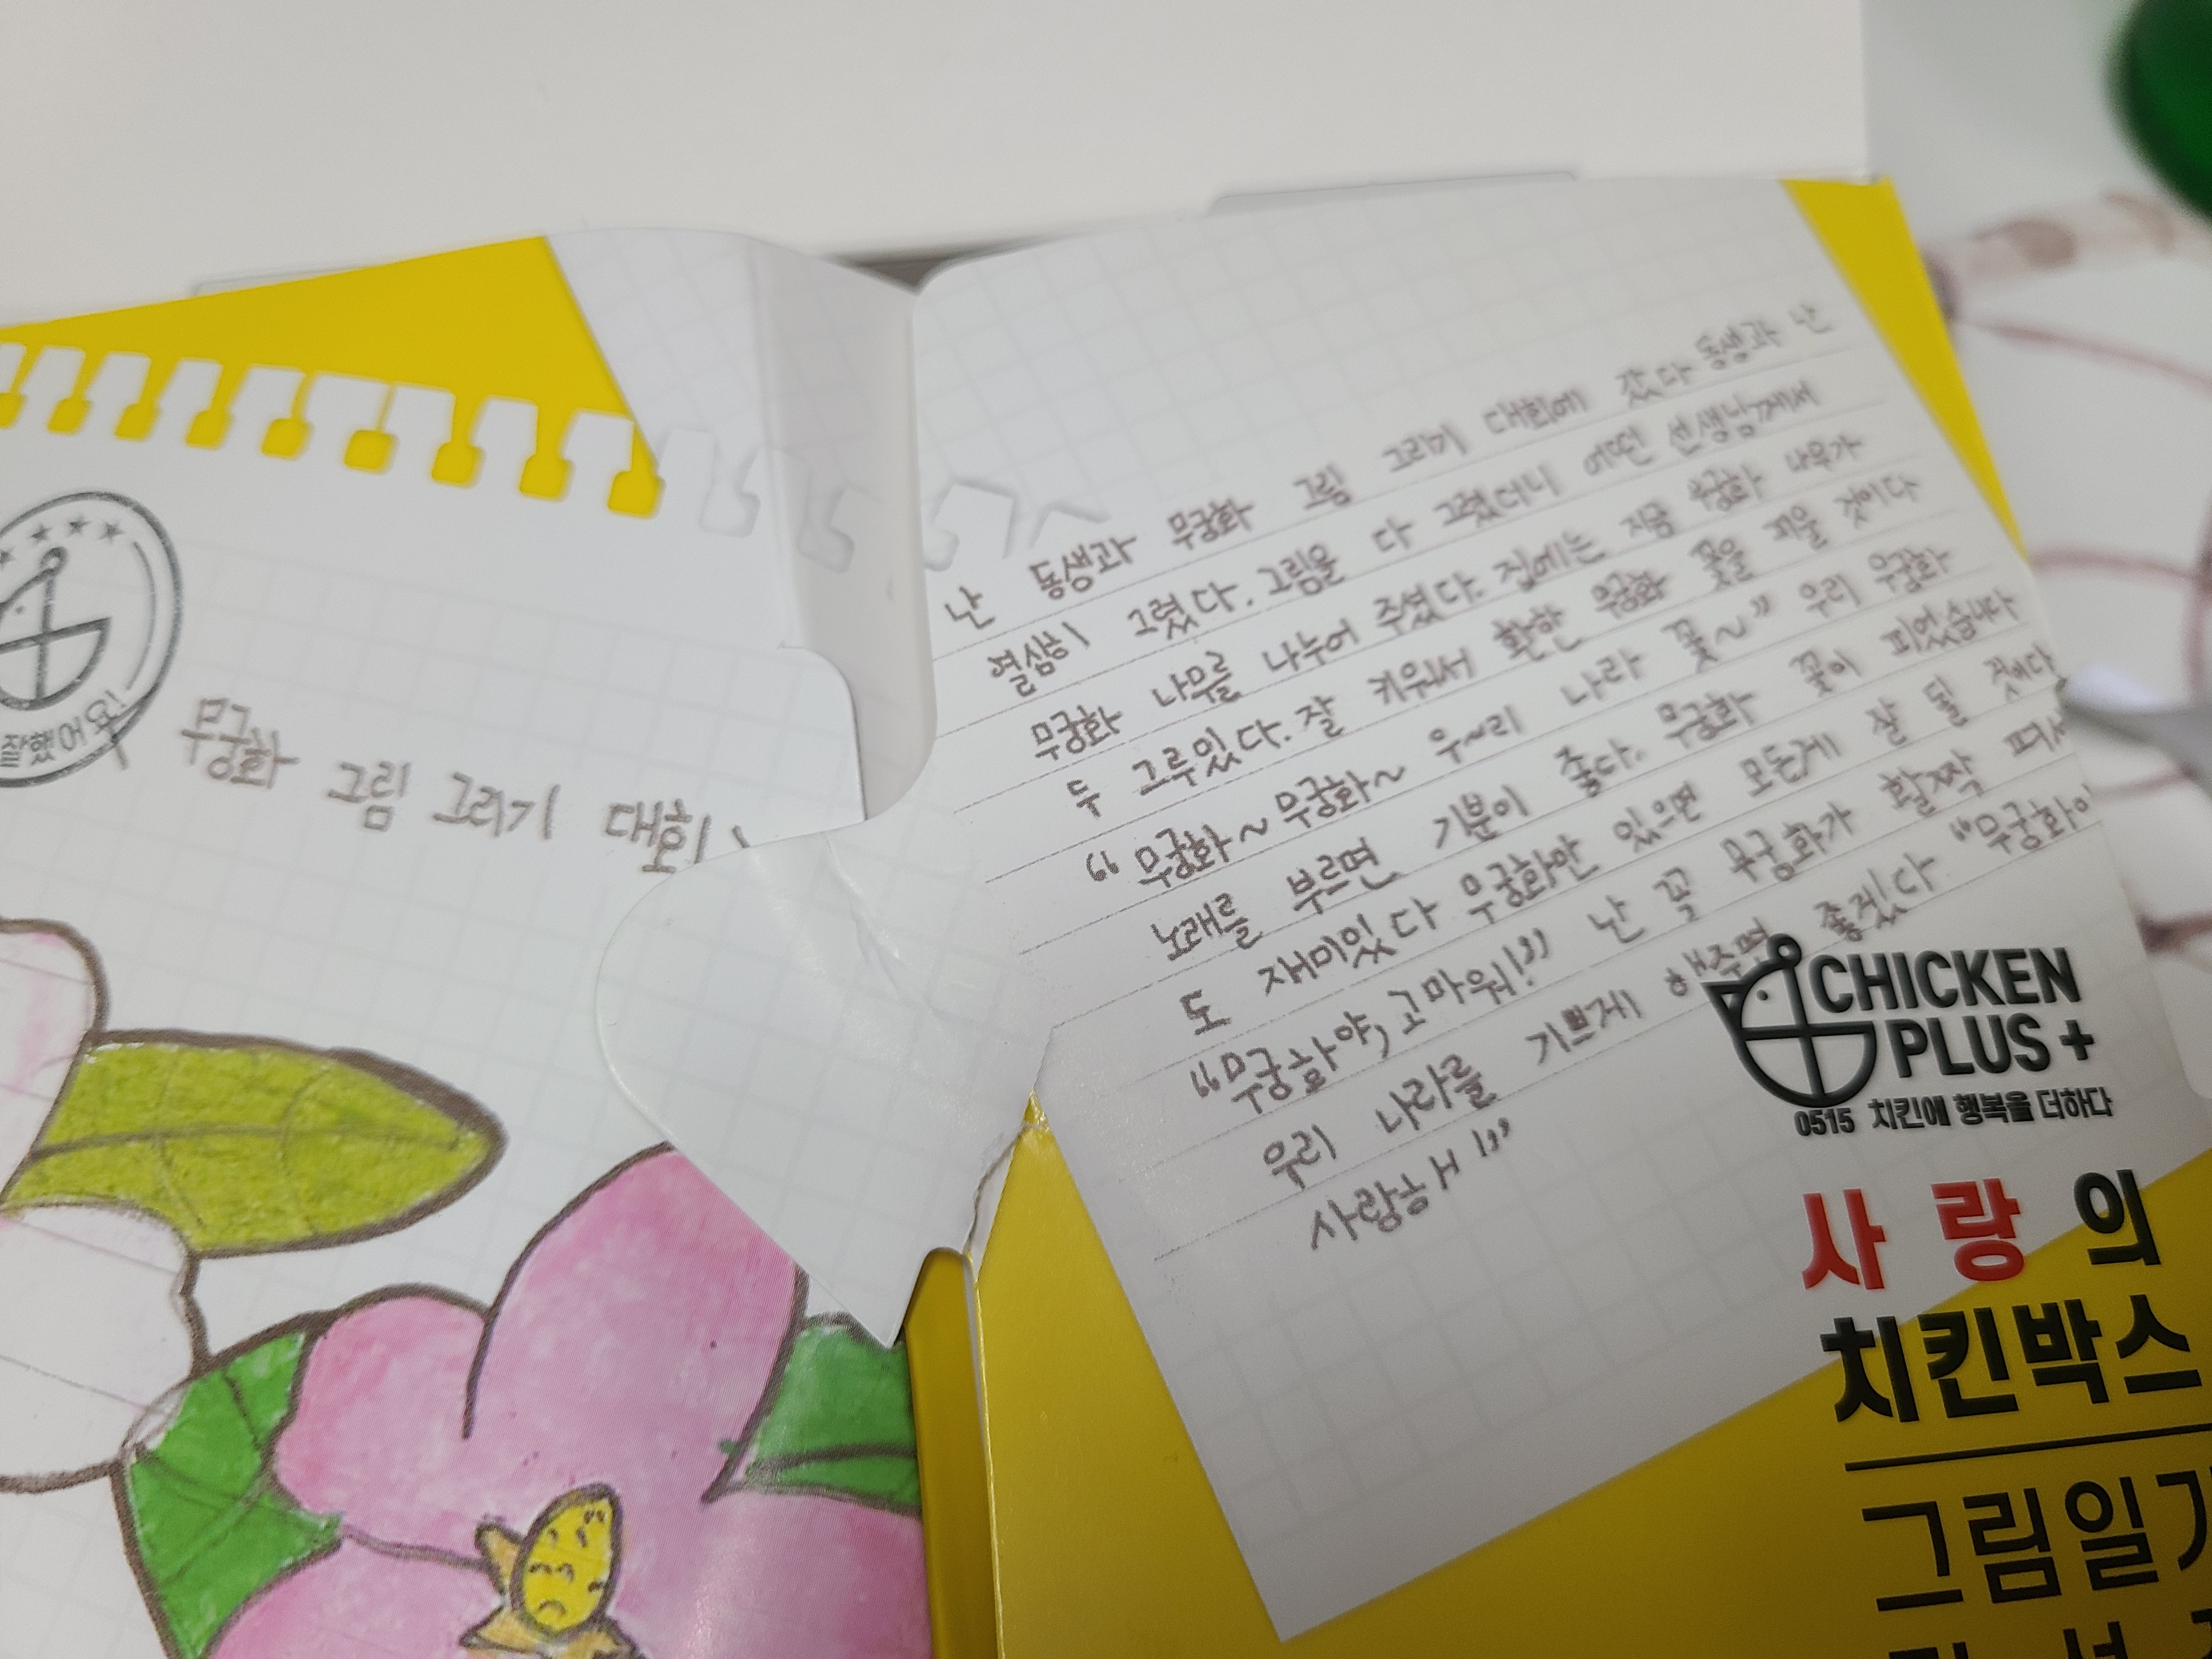 잘했어요!
무궁화 그림 그리기 대회
난 동생과 무궁화 그림 그리기 대회에 갔다 동생과 난
열심히 그렸다. 그림을 다 그렸더니 어떤 선생님께서
무궁화 나무를 나누어 주셨다. 집에는 지금 무궁화 나무가
두 그루있다. 잘 키워서 환한 무궁화 꽃을 피울 것이다
“무궁화~ 무궁화~ 우~리 나라 꽃~” 우리 무궁화
노래를 부르면 기분이 좋다. 무궁화 꽃이 피었습니다
도 재미있다 무궁화만 있으면 모든게 잘 될 것이다
“무궁화야, 고마워!” 난 꼭 무궁화가 활짝 펴서
우리 나라를 기쁘게 해주면 좋겠다 “무궁화야
사랑해!”
CHICKEN
PLUS+
0515 치킨에 행복을 더하다
사랑의
치킨박스
그림일기